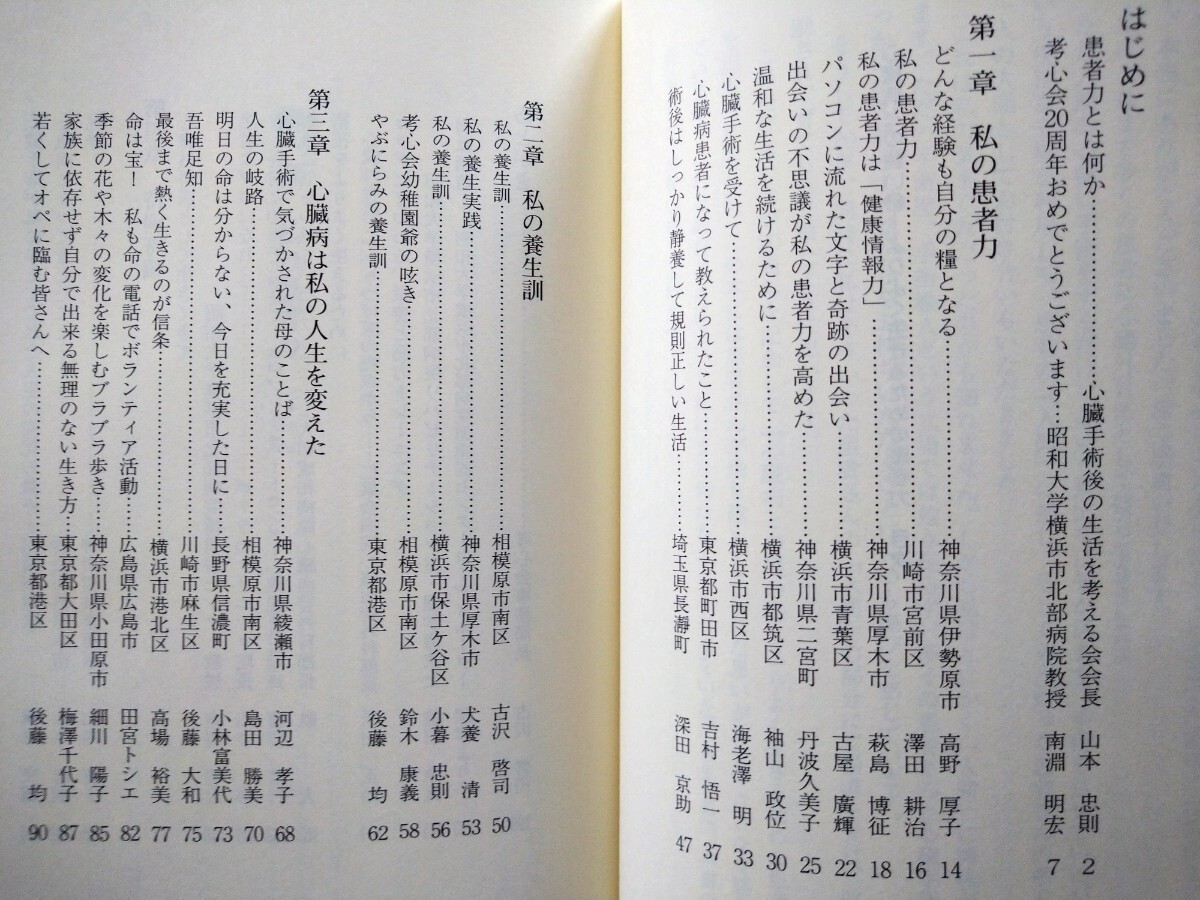 はじめに
患者力とは何か……………………心臓手術後の生活を考える会会長　山本　忠則　2
考心会20周年おめでとうございます…昭和大学横浜市北部病院教授　南淵　明宏　7
第一章　私の患者力
どんな経験も自分の糧となる……………………神奈川県伊勢原市　高野　厚子　14
私の患者力……………………………………川崎市宮前区　澤田　耕治　16
私の患者力は「健康情報力」……………………神奈川県厚木市　萩島　博征　18
パソコンに流れた文字と奇跡の出会い…………横浜市青葉区　古屋　廣輝　22
出会いの不思議が私の患者力を高めた…………神奈川県二宮町　丹波久美子　25
温和な生活を続けるために……………………横浜市都筑区　袖山　政位　30
心臓手術を受けて……………………………横浜市西区　海老澤　明　33
心臓病患者になって教えられたこと……………東京都町田市　吉村　悟一　37
術後はしっかり静養して規則正しい生活………埼玉県長瀞町　深田　京助　47
第二章　私の養生訓
私の養生訓……………………………………相模原市南区　古沢　啓司　50
私の養生実践…………………………………神奈川県厚木市　犬養　清　53
私の養生訓……………………………………横浜市保土ケ谷区　小暮　忠則　56
考心会幼稚園爺の呟き………………………相模原市南区　鈴木　康義　58
やぶにらみの養生訓…………………………東京都港区　後藤　均　62
第三章　心臓病は私の人生を変えた
心臓手術で気づかされた母のことば……………神奈川県綾瀬市　河辺　孝子　68
人生の岐路……………………………………相模原市南区　島田　勝美　70
明日の命は分からない、今日を充実した日に……長野県信濃町　小林富美代　73
吾唯足知………………………………………川崎市麻生区　後藤　大和　75
最後まで熱く生きるのが信条…………………横浜市港北区　高場　裕美　77
命は宝！　私も命の電話でボランティア活動……広島県広島市　田宮トシエ　82
季節の花や木々の変化を楽しむブラブラ歩き……神奈川県小田原市　細川　陽子　85
家族に依存せず自分で出来る無理のない生き方…東京都大田区　梅澤千代子　87
若くしてオペに臨む皆さんへ……………………東京都港区　後藤　均　90